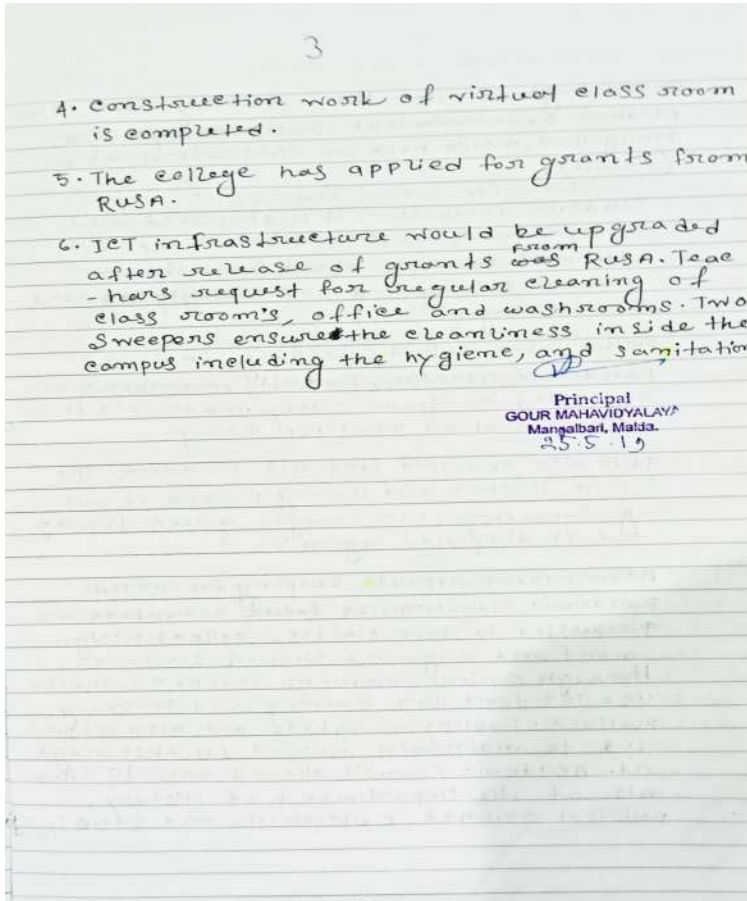 3
4. Construction work of virtual class room
is completed.
5. The college has applied for grants from
RUSA.
6. ICT infrastructure would be upgraded
after release of grants from RUSA. Teac
-hars request for regular cleaning of
class room's, office and washrooms. Two
Sweepers ensure the cleanliness inside the
campus including the hygiene, and sanitation
Principal
GOUR MAHAVIDYALAYA
Mangalbari, Malda.
25.5.19